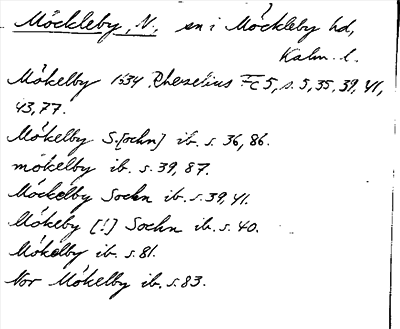 Möckleby, N., sn i Möckleby hd,
Kalm. l.
Mökelby 1634 Rhezelius Fc5, s. 5, 35, 39, 41,
43, 77.
Mökelby S.[ochn] ib. s. 36, 86.
mökelby ib. s. 39, 87.
Möckelby Sochn ib. s. 39, 41.
Mökeby [!] Sochn ib. s. 40.
Mökelby ib. s. 81.
Nor Mökelby ib. s. 83.